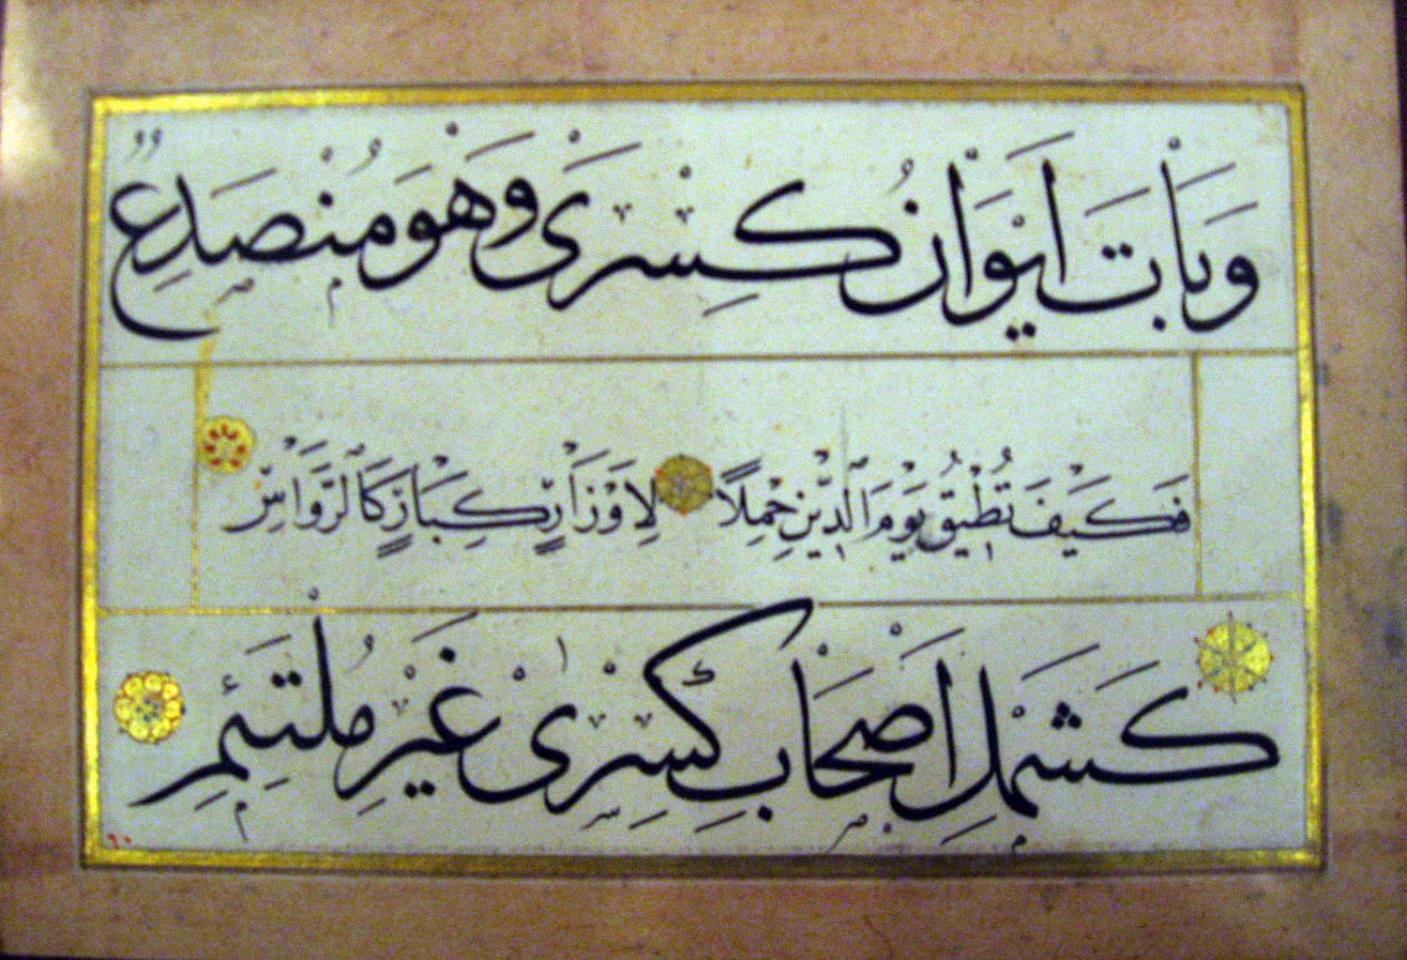 وَبَاتَ اِيْوَانُ كِسْرَىٰ وَهْوَ مُنْصَدِعٌ
فَكَيْفَ تُطْيِقُ يَوْمَ الدِّيْنِ حِمْلًا لِاَوْزَارٍ كِبَارٍ كَالرَّوَاسِ
كَشَمْلِ اَصْحَابِ كِسْرٰى غَيْرَ مُلْتَئِمِ
٦٠